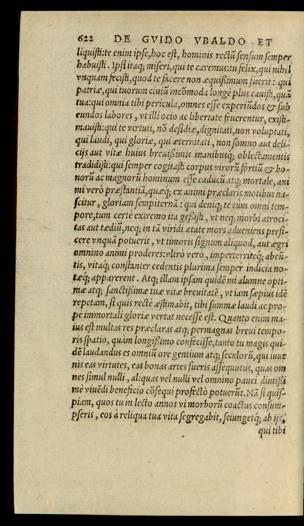 622 DE GVIDO VBALDO ET
liquisti: te enim ipse, hoc est, hominis rectũ sensum semper
habuisti. Ipsi itaq; miseri, qui te caremus: tu felix, qui nihil
vnquam fecisti, quod te facere non æquissimum fuerit: qui
patriæ, qui tuorum ciuiũ incõmoda longè plus cauisti, quã
tua: qui omnia tibi pericula, omnes esse experiũdos & sub
eundos labores, vt illi ocio ac libertate fruerentur, existi-
mauisti: qui te virtuti, nõ desidiæ, dignitati, non voluptati,
qui laudi, qui gloriæ, qui æternitati, non somno aut deli-
cijs aut vitæ huius breuissimis manibusq; oblectamentis
tradidisti: qui semper cogitasti corpus virorũ fortiũ & bo-
norũ ac magnorũ hominum esse caducũ atq; mortale, ani
mi verò præstantiã, quæq; ex animi præclaris motibus na-
scitur, gloriam sempiternã: qui deniq; te cùm omni tem-
pore, tum certè extremo ita gessisti, vt neq; morbi atroci-
tas aut tædiũ, neq; in tã viridi ætate mors adueniens perfi-
cere vnquã potuerit, vt timoris signum aliquod, aut ægri
omnino animi proderes: vltrò vero, imperterriteq; abeũ-
tis, vitaq; constanter cedentis plurima semper indicia no-
tæq; apparerent. Atq; illam ipsam quidẽ mi alumne opti-
mæ atq; sanctissimæ tuæ vitæ breuitatẽ, vt iam sæpius idẽ
repetam, si quis rectè æstimabit, tibi summæ laudi ac pro-
pè immortali gloriæ vertat necesse est. Quanto enim ma-
ius est multas res præclaras atq; permagnas breui tempo-
ris spatio, quàm longissimo confecisse, tanto tu magis qui-
dẽ laudandus es omniũ ore gentium atq; seculorũ, qui iuue
nis eas virtutes, eas bonas artes fueris assequutus, quas om
nes simul nulli, aliquas vel nulli vel omnino pauci diutissi
mè viuẽdi beneficio cõsequi profectò potuerũt. Nã si quis-
piam, quos tu in lecto annos vi morborũ coactus consum-
pseris, eos à reliqua tua vita segregabit, seiungetq; ab ijs,
qui tibi